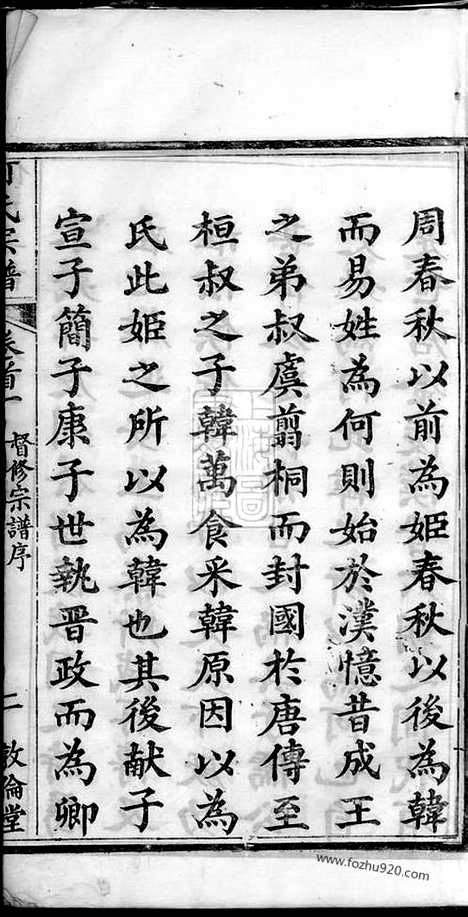 周春秋以前為姬春秋以後為韓
而易姓為何則始於漢憶昔成王
之弟叔虞翦桐而封國於唐傳至
桓叔之子韓萬食采韓原因以為
氏此姬之所以為韓也其後献子
宣子簡子康子世執晋政而為卿
何氏宗譜 卷首一 督修宗譜序 二 敦倫堂
www.fozhu920.com